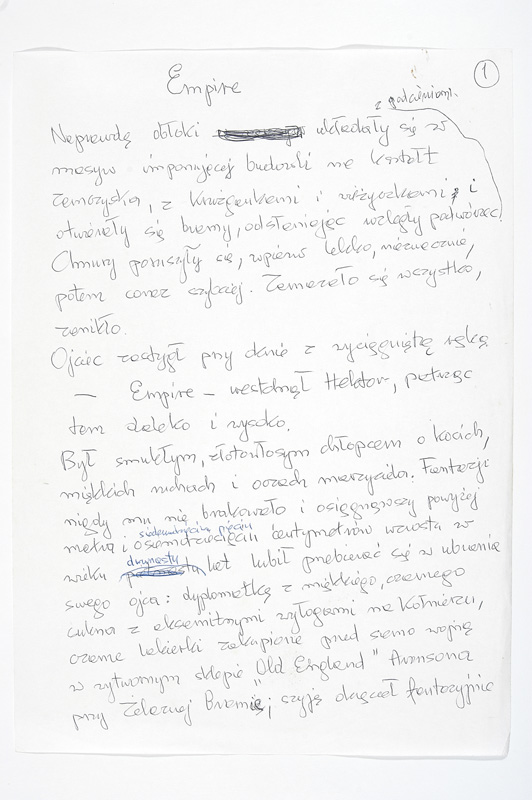 1
Empire
z podcieniami.
Naprawdę obłoki układały się w
masyw imponującej budowli na kształt
zamczyska, z krużgankami i wieżyczkami, i
otwierały się bramy, odsłaniając względy podwórzec.
Chmury poruszyły się, wpierw lekko, nieznacznie,
potem coraz szybciej. Zamazało się wszystko,
znikło.
Ojciec zastygł przy oknie z wyciągniętą ręką
— Empire – westchnął Hektor, patrząc
tam daleko i wysoko.
Był smukłym, złotowłosym chłopcem o kocich,
miękkich ruchach i oczach marzyciela. Fantazji
nigdy mu nie brakowało i osiągnąwszy powyżej
siedemdziesięciu pięciu
metra i osiemdziesięciu centymetrów wzrostu w
dwunastu
wieku lat lubił przebierać się w ubrania
swego ojca: dyplomatkę z miękkiego, czarnego
sukna z aksamitnymi wyłogami na kołnierzu,
czarne lakierki zakupione przed samą wojną
w wytwornym sklepie "Old England" Aronsona
przy Żelaznej Bramie; szyję okręcał fantazyjnie